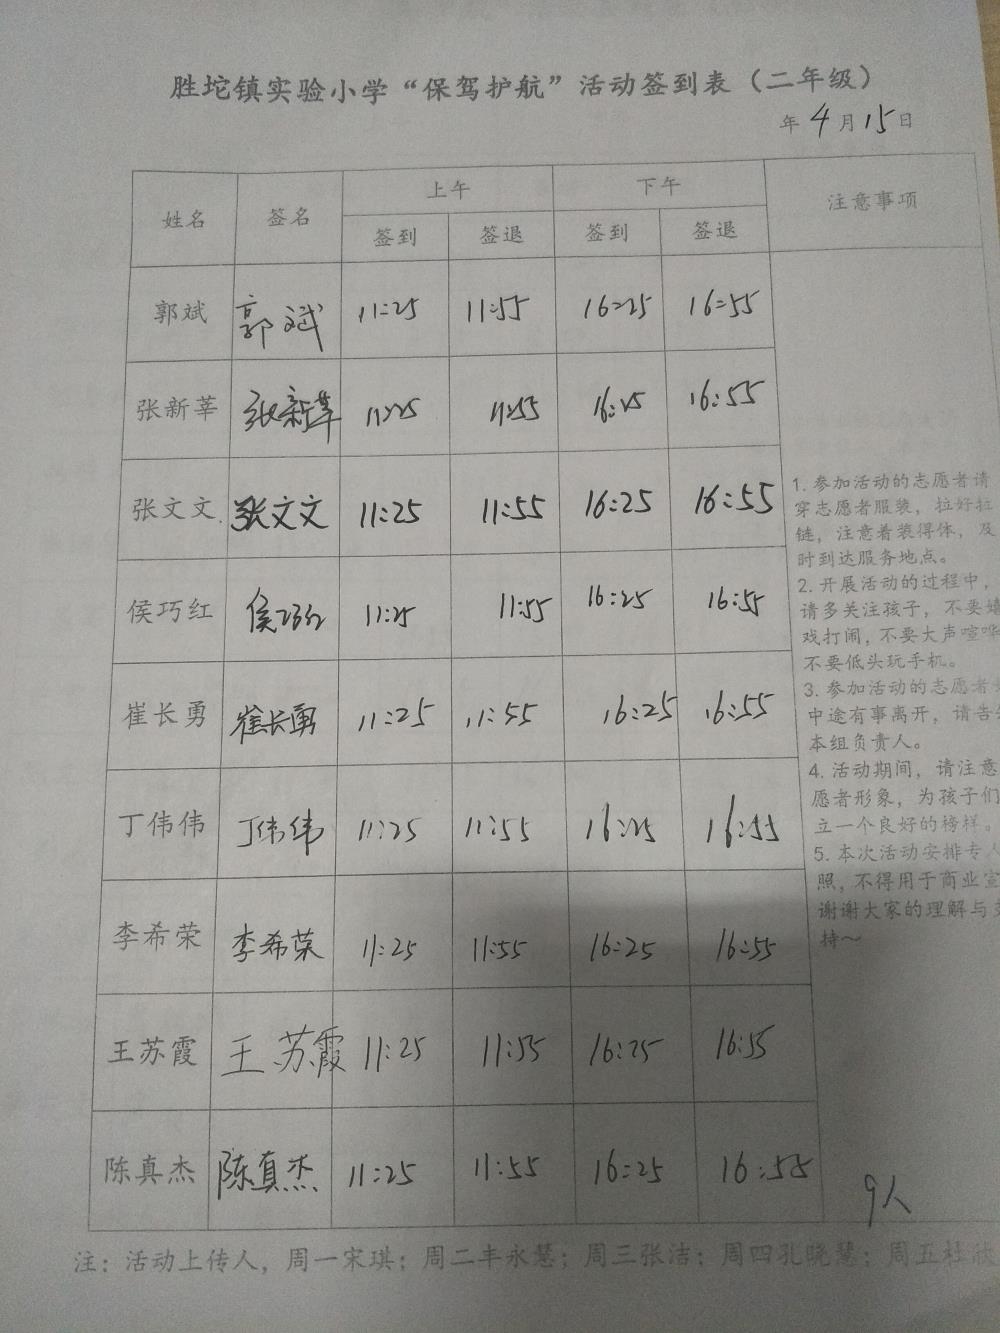 胜坨镇实验小学“保驾护航”活动签到表（二年级）
年 4 月 15 日
姓名 签名 上午 下午 注意事项
签到 签退 签到 签退
郭斌 郭斌 11:25 11:55 16:25 16:55
张新莘 张新莘 11:25 11:55 16:25 16:55
张文文 张文文 11:25 11:55 16:25 16:55
侯巧红 侯巧红 11:25 11:55 16:25 16:55
崔长勇 崔长勇 11:25 11:55 16:25 16:55
丁伟伟 丁伟伟 11:25 11:55 16:25 16:55
李希荣 李希荣 11:25 11:55 16:25 16:55
王苏霞 王苏霞 11:25 11:55 16:25 16:55
陈真杰 陈真杰 11:25 11:55 16:25 16:55
1. 参加活动的志愿者请
穿志愿者服装，拉好拉
链，注意着装得体，及
时到达服务地点。
2. 开展活动的过程中，
请多关注孩子，不要嬉
戏打闹，不要大声喧哗
不要低头玩手机。
3. 参加活动的志愿者
中途有事离开，请告
本组负责人。
4. 活动期间，请注意
愿者形象，为孩子们
立一个良好的榜样。
5. 本次活动安排专人
照，不得用于商业宣
谢谢大家的理解与支
持～
9人
注：活动上传人，周一宋琪；周二丰永慧；周三张洁；周四孔晓慧；周五杜欣